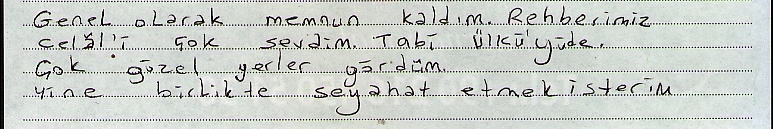 Genel olarak memnun kaldım. Rehberimiz
Celâl'i çok sevdim. Tabî Ülkü'yüde.
Çok güzel yerler gördüm.
Yine birlikte seyahat etmek isterim